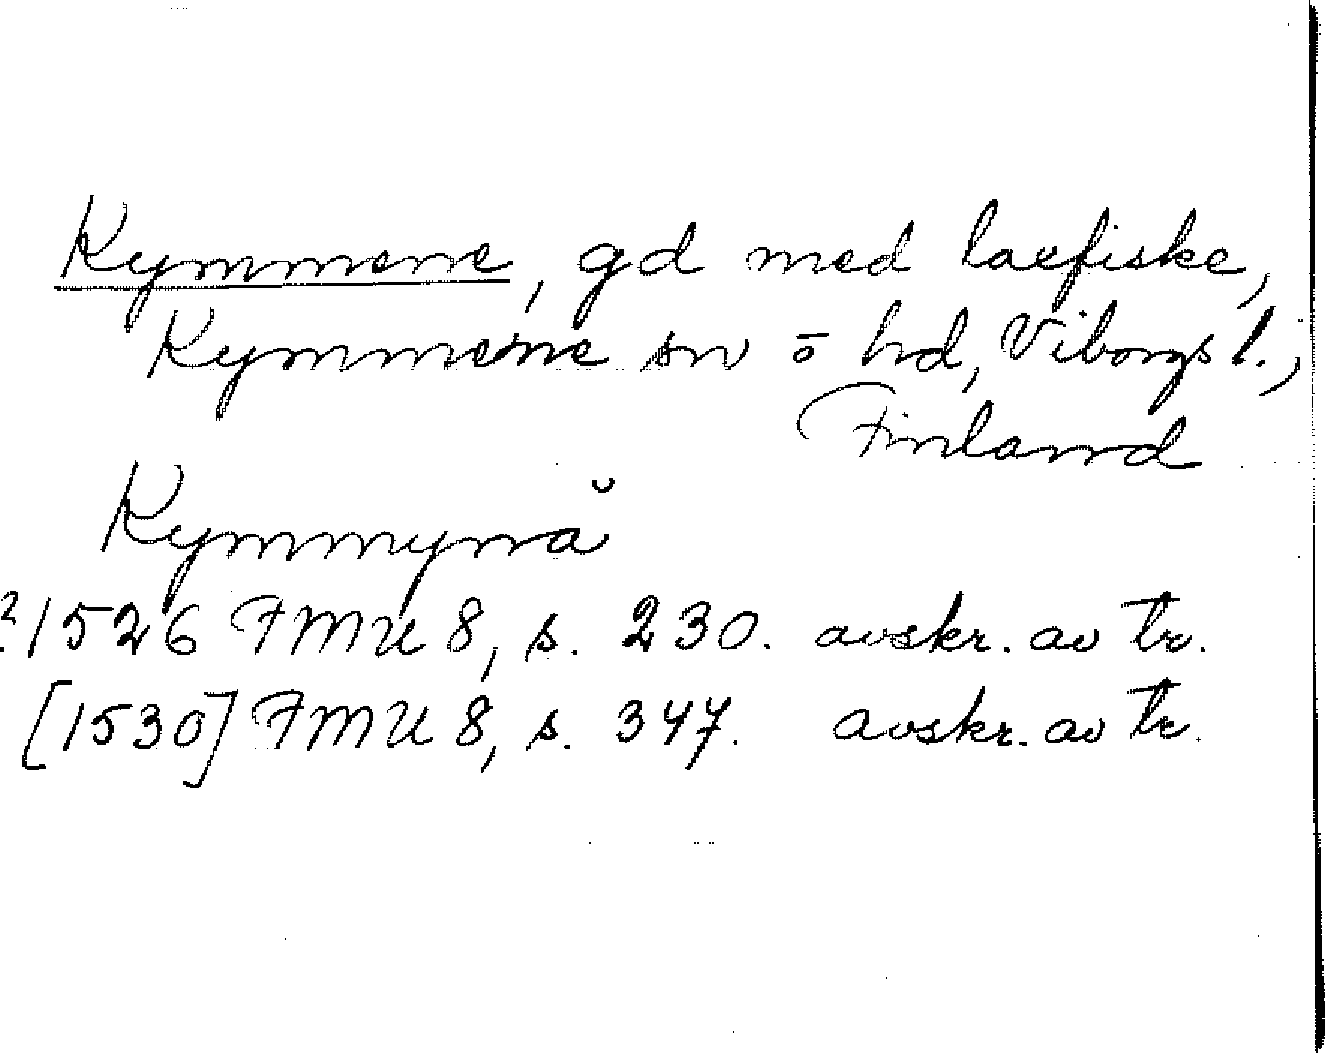 Kymmene, gd med laxfiske,
Kymmene sn o hd, Viborgs l.,
Finland
Kymmynå
?1526 FMU 8, s. 230. avskr. av tr.
[1530] FMU 8, s. 347. avskr. av tr.